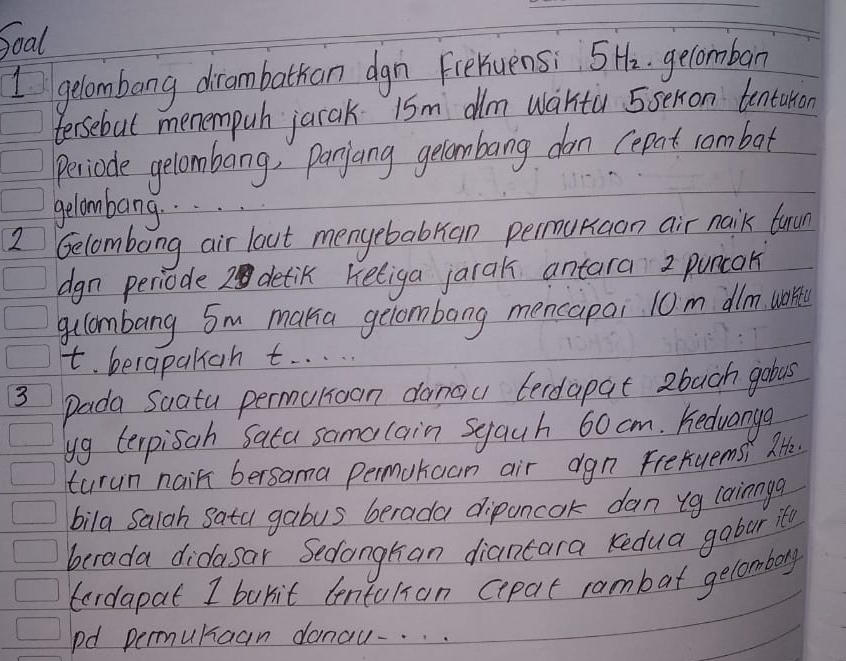 Soal
1 gelombang dirambatkan dgn Frekuensi 5Hz. gelomban
tersebut menempuh jarak 15m dlm waktu 5sekon tentukan
Periode gelombang, Panjang gelombang dan Cepat rambat
gelombang......
2 Gelombang air laut menyebabkan permukaan air naik turun
dgn periode 2 detik ketiga jarak antara 2 puncak
gelombang 5m maka gelombang mencapai 10m dlm waktu
t. berapakah t.....
3 Pada Suatu permukaan danau terdapat 2buah gabus
yg terpisah satu sama lain sejauh 60cm. Keduanya
turun naik bersama permukaan air dgn Frekuemsi 2Hz.
bila salah satu gabus berada dipuncak dan yg lainnya
berada didasar Sedangkan diantara kedua gabur itu
terdapat 1 bukit tentukan Cepat rambat gelombang
pd permukaan danau-....